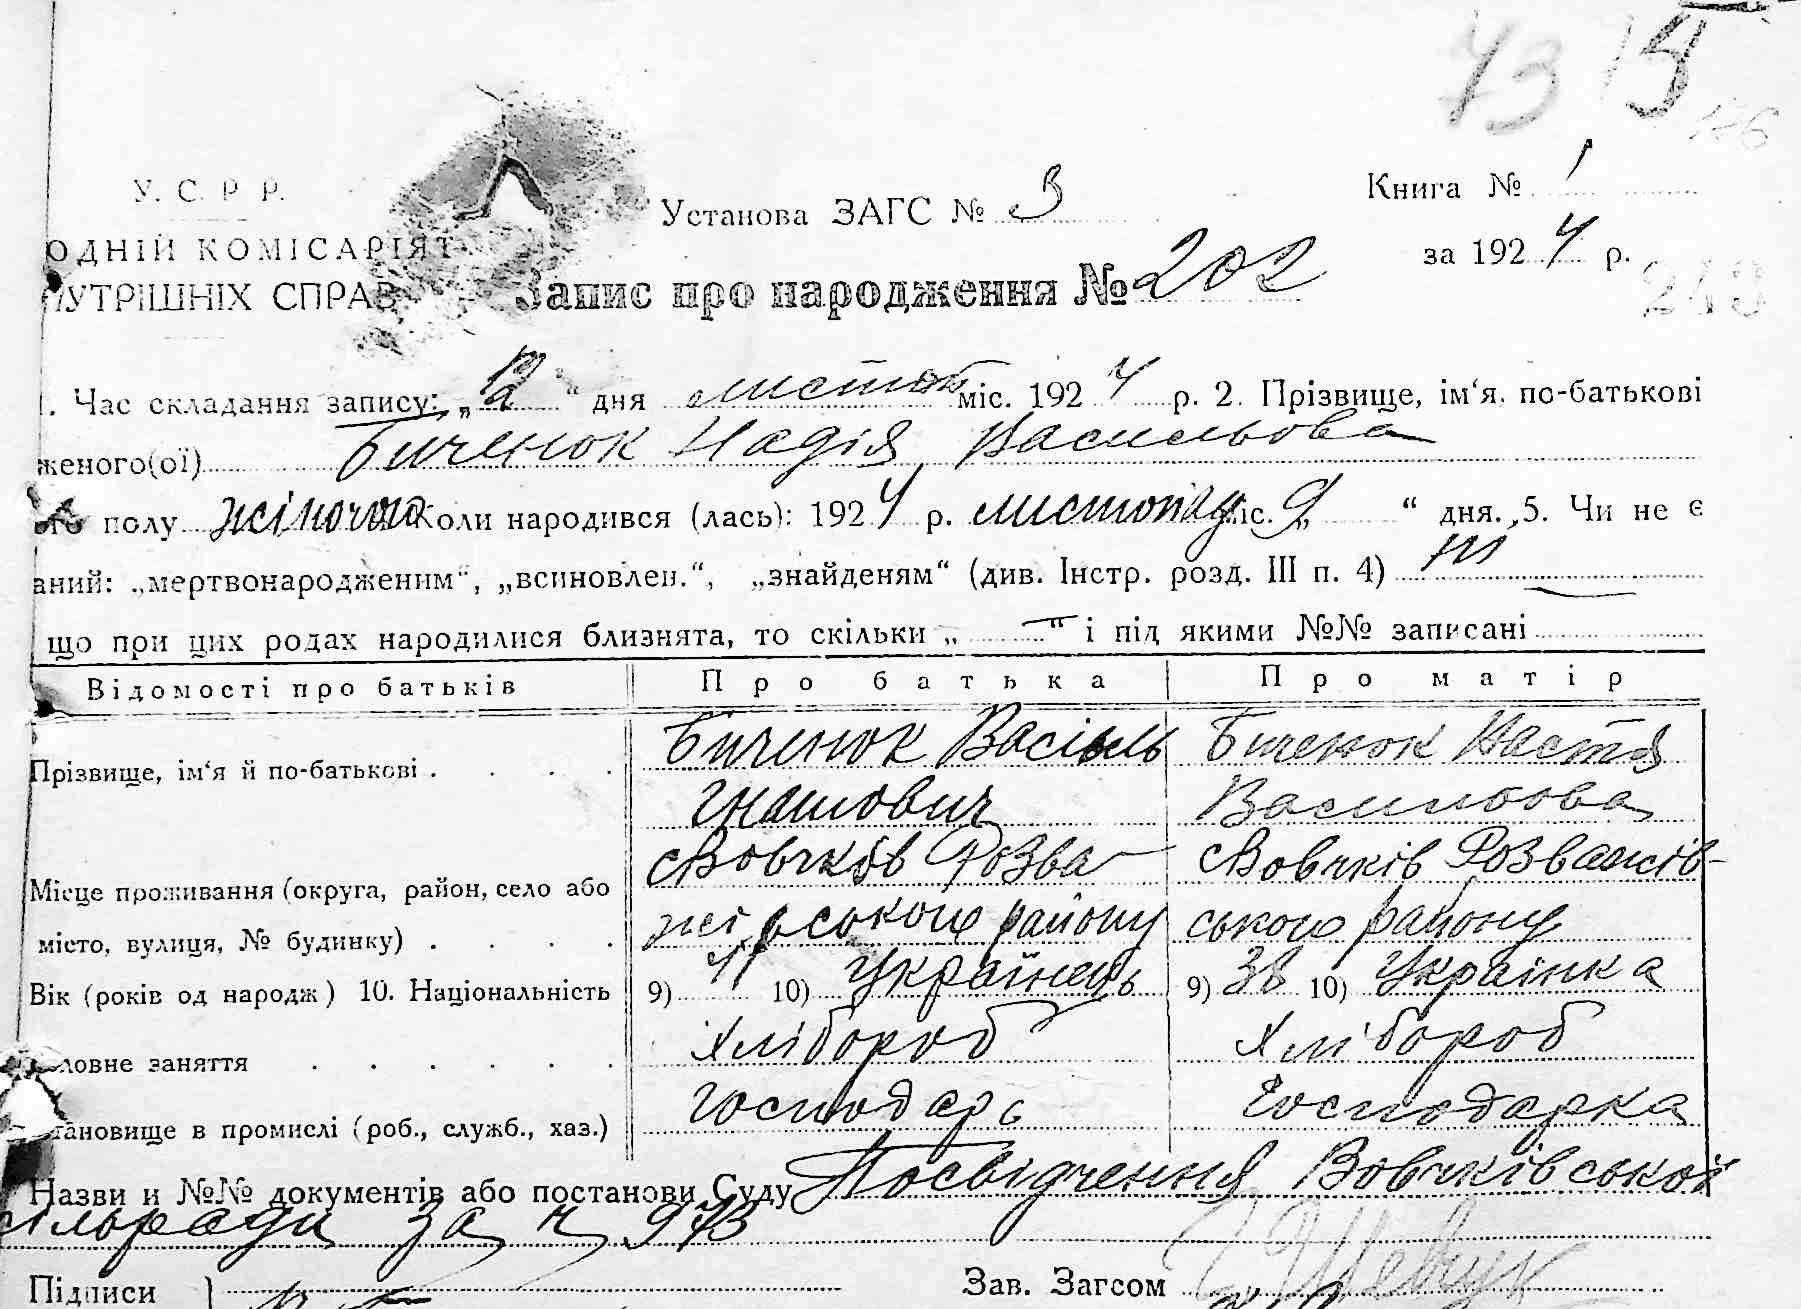 73 15
У. С. Р. Р.
Установа ЗАГС № 3
Книга № 1
ОДНІЙ КОМІСАРІЯТ
за 1924 р.
УТРІШНІХ СПРАВ
Запис про народження № 202
Час складання запису: „12“ дня листоп міс. 1924 р. 2. Прізвище, ім‘я, по-батькові
женого(ої) Биченок Надія Васильова
ого полу жіночого Коли народився (лась): 1924 р. листопаду міс. „9“ дня. 5. Чи не є
аний: „мертвонародженим“, „всиновлен.“, „знайденям“ (див. Інстр. розд. III п. 4) ні
що при цих родах народилися близнята, то скільки „—“ і під якими №№ записані
Відомості про батьків Про батька Про матір
Прізвище, ім‘я й по-батькові . . . . Биченок Васіль Биченок Настя
Гнатович Васильова
Місце проживання (округа, район, село або Вовчків Розва- Вовчків Розважів-
місто, вулиця, № будинку) . . . . жівського району ського району
Вік (років од народж) 10. Національність 9) 10) Українець 9) 38 10) Українка
ловне заняття . . . . . . Хлібороб Хлібороб
тановище в промислі (роб., служб., хаз.) Господарь Господарка
Назви и №№ документів або постанови Суду Посвідчення Вовчківської
сільради за ч 973
Підписи
Зав. Загсом Шевчук